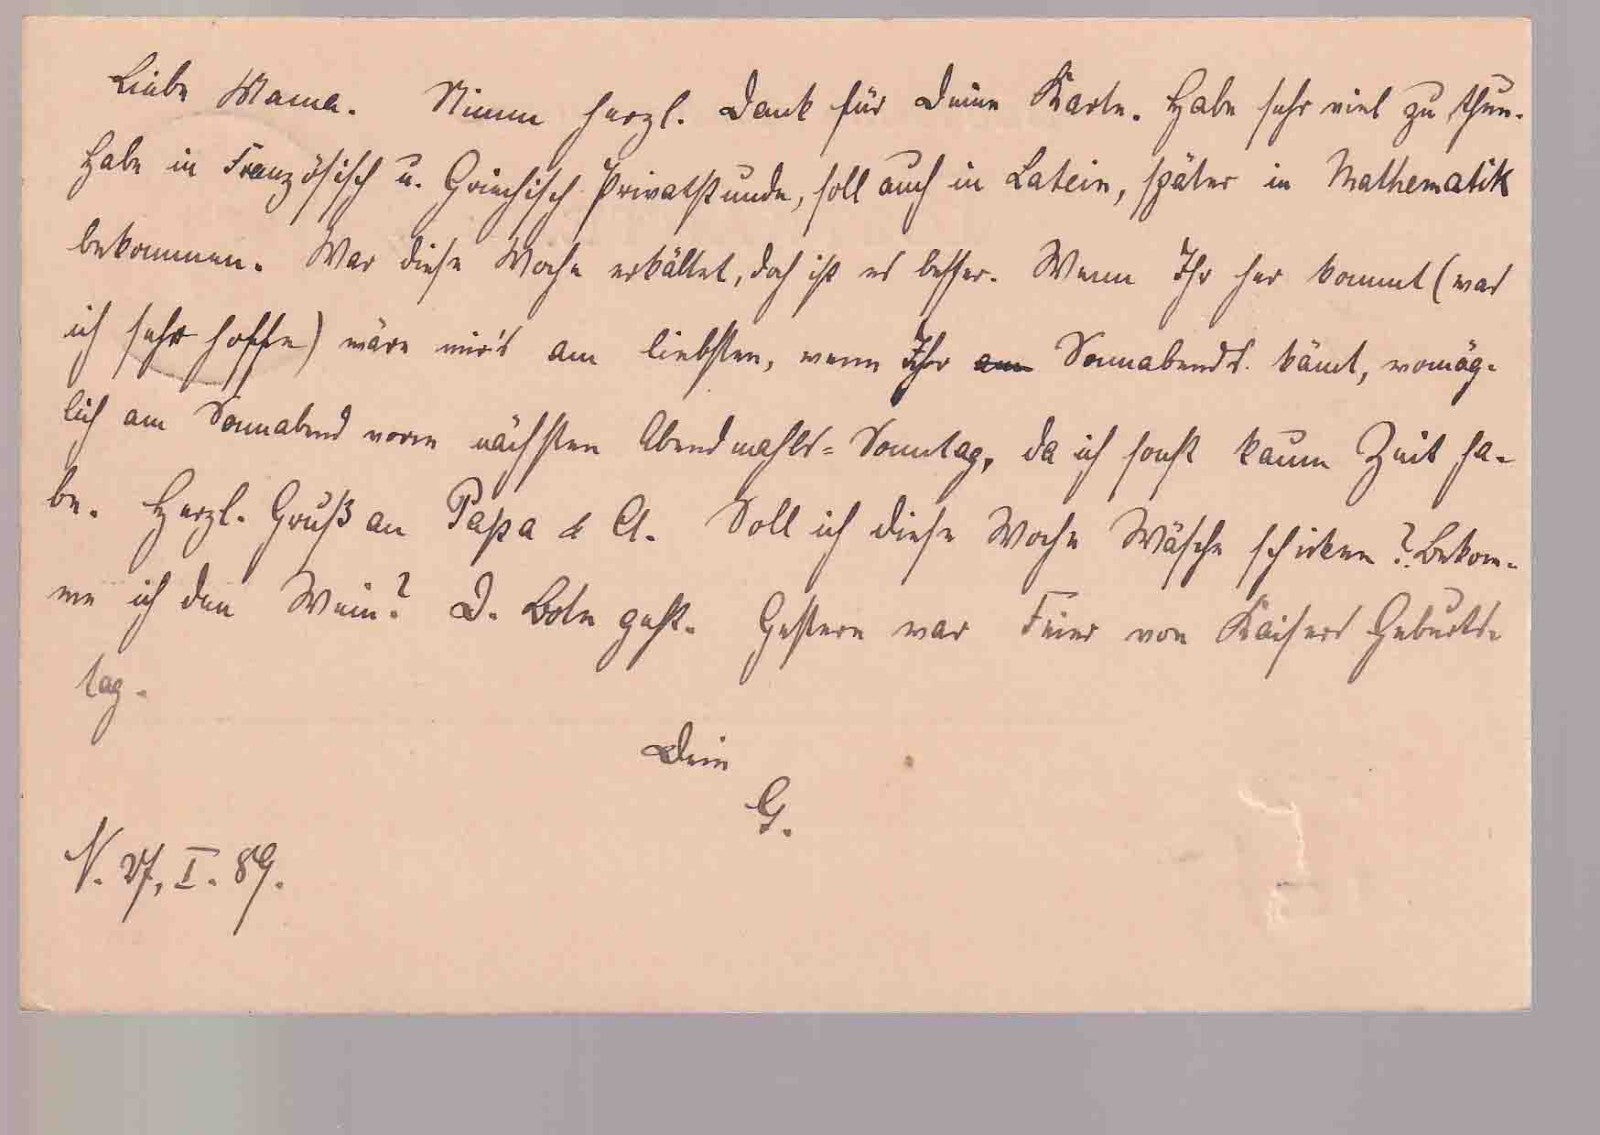 Liebe Mama. Nimm herzl. Dank für Deine Karte. Habe sehr viel zu thun.
Habe in Französisch u. Griechisch Privatstunde, soll auch in Latein, später in Mathematik
bekommen. War diese Woche erkältet, doch ist es besser. Wenn Ihr her kommt (was
ich sehr hoffe) wäre mir's am liebsten, wenn Ihr am Sonnabends. kämt, womög-
lich am Sonnabend vorm nächsten Abendmahls=Sonntag, da ich sonst kaum Zeit ha-
be. Herzl. Gruß an Papa & A. Soll ich diese Woche Wäsche schicken? Bekom-
me ich den Wein? D. Bote geht. Gestern war Feier von Kaisers Geburts-
tag.
Dein
G.
N. 27. I. 89.